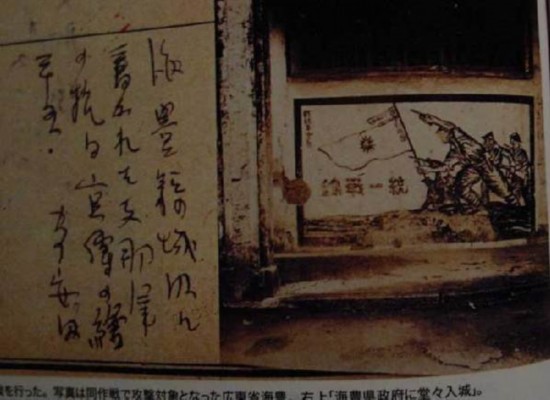 海豊縣城内に
書かれた支那軍
の抗日宣傳の繪
統一戰線
を行った。写真は同作戦で攻撃対象となった広東省海豊。右上「海豊県政府に堂々入城」。